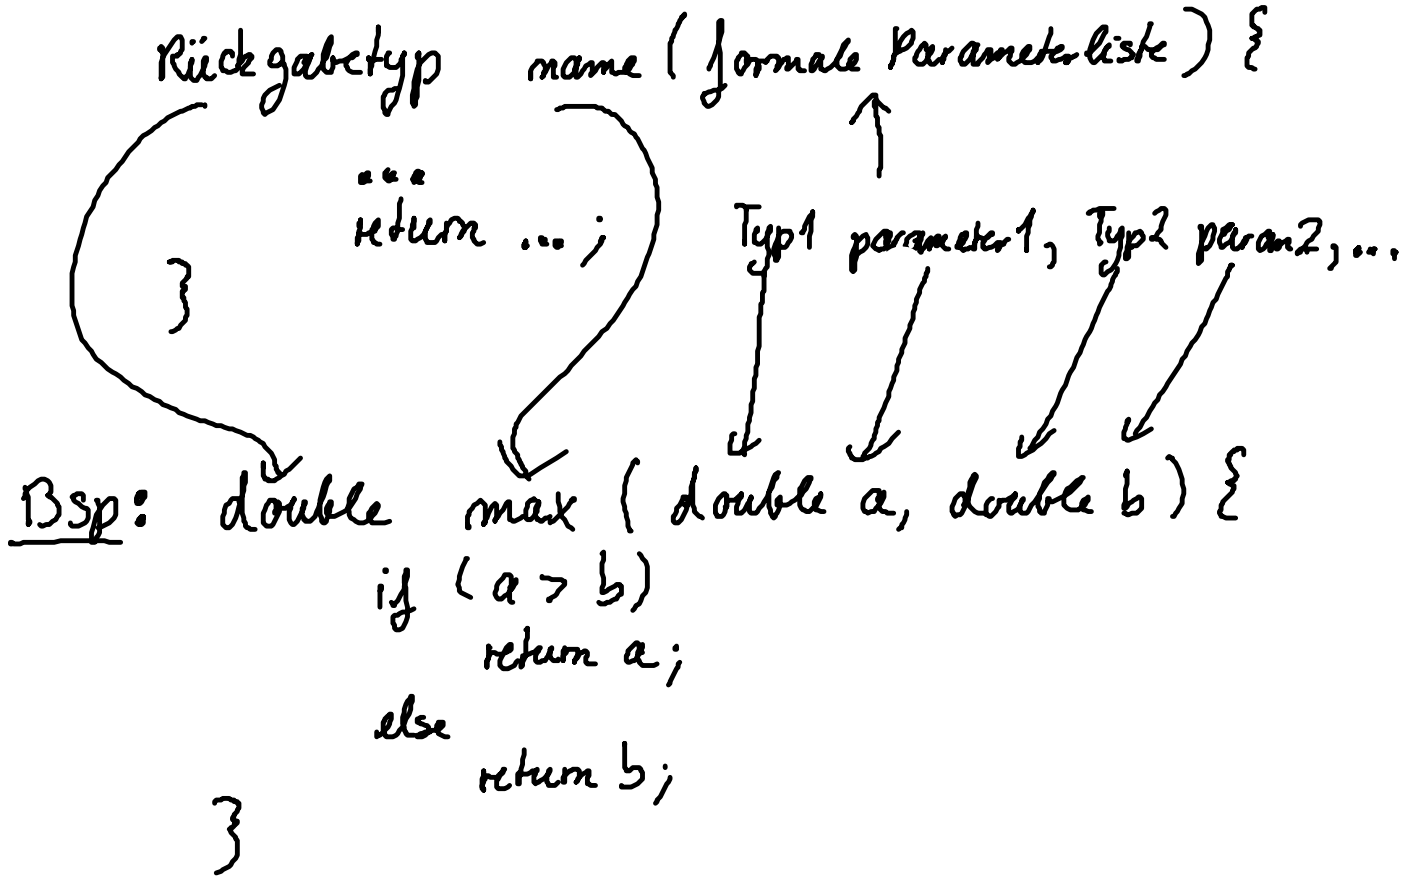 Rückgabetyp name (formale Parameterliste) {
...
return ...;
Typ1 parameter1, Typ2 param2, ...
}
Bsp: double max (double a, double b) {
if (a > b)
return a;
else
return b;
}